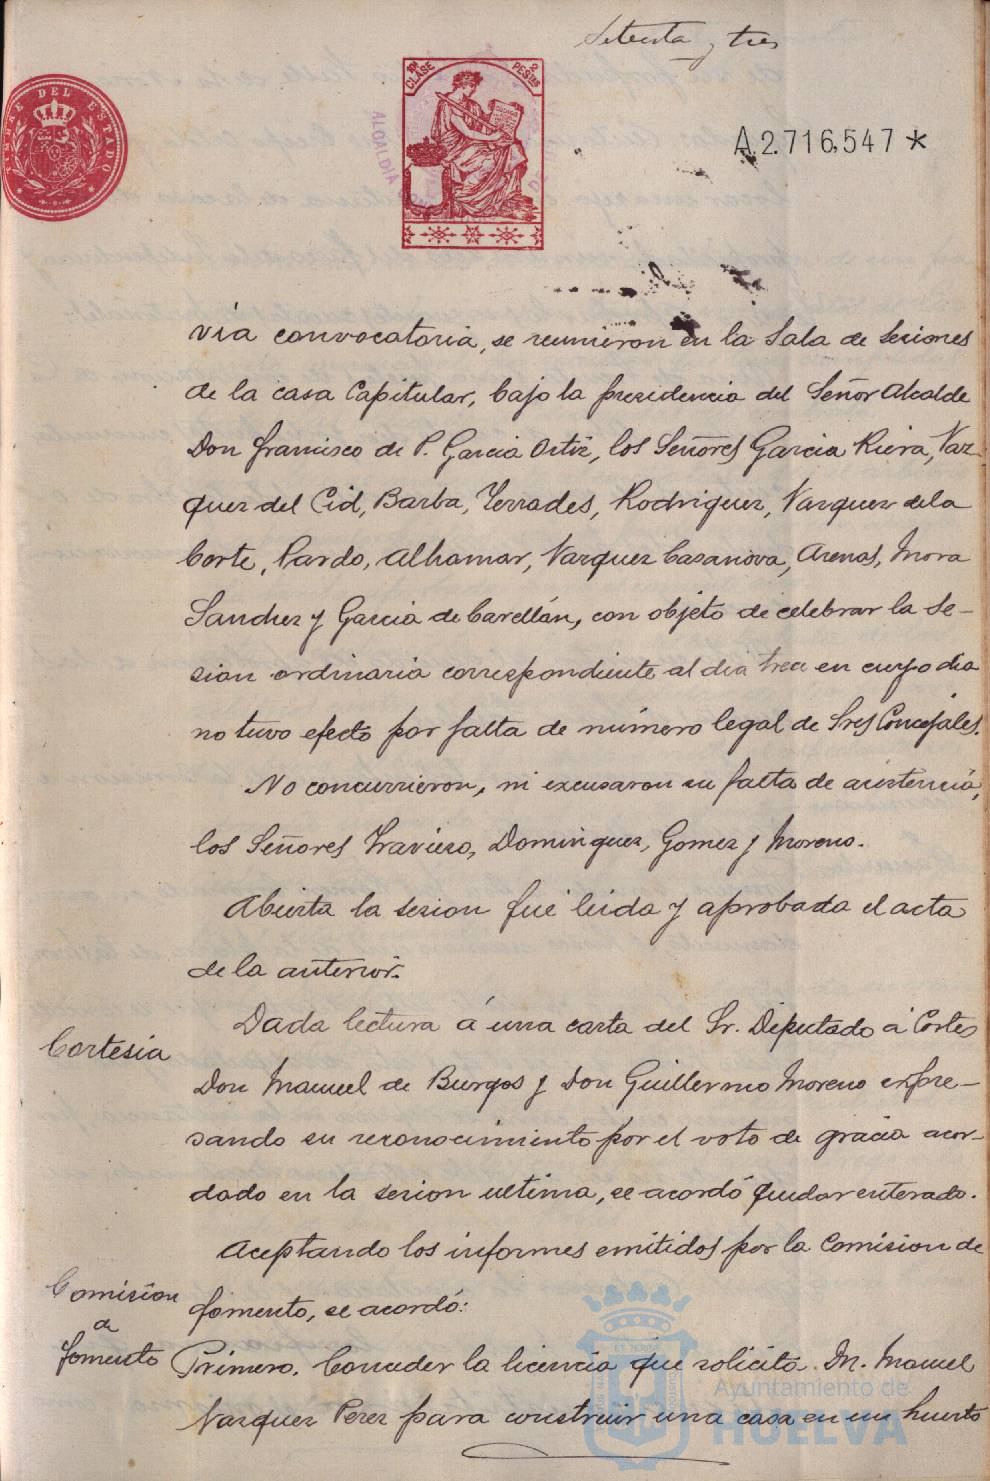 Setenta y tres
TIMBRE DEL ESTADO
10ª CLASE
2 PESETAS
ALCALDIA
A.2.716,547 *
via convocatoria, se reunieron en la Sala de sesiones
de la casa Capitular, bajo la presidencia del Señor Alcalde
Don Francisco de P. Garcia Ortiz, los Señores Garcia Riera, Vaz-
quez del Cid, Barba, Terrades, Rodriguez, Vazquez de la
Corte, Pardo, Alhamar, Vazquez Casanova, Arenas, Mora
Sanchez y Garcia de Carellán, con objeto de celebrar la se-
sion ordinaria correspondiente al dia trece en cuyo dia
no tuvo efecto por falta de número legal de Sres Concejales.
No concurrieron, ni excusaron su falta de asistencia,
los Señores Travieso, Dominguez, Gomez y Moreno.
Abierta la sesion fué leida y aprobada el acta
de la anterior.
Cortesia
Dada lectura á una carta del Sr. Diputado á Cortes
Don Manuel de Burgos y Don Guillermo Moreno expre-
sando su reconocimiento por el voto de gracia acor-
dado en la sesion ultima, se acordó quedar enterado.
Comision
de
fomento
Aceptando los informes emitidos por la Comision de
fomento, se acordó:
Primero. Conceder la licencia que solicita D. Manuel
Vazquez Perez para construir una casa en un huerto
Ayuntamiento de
HUELVA